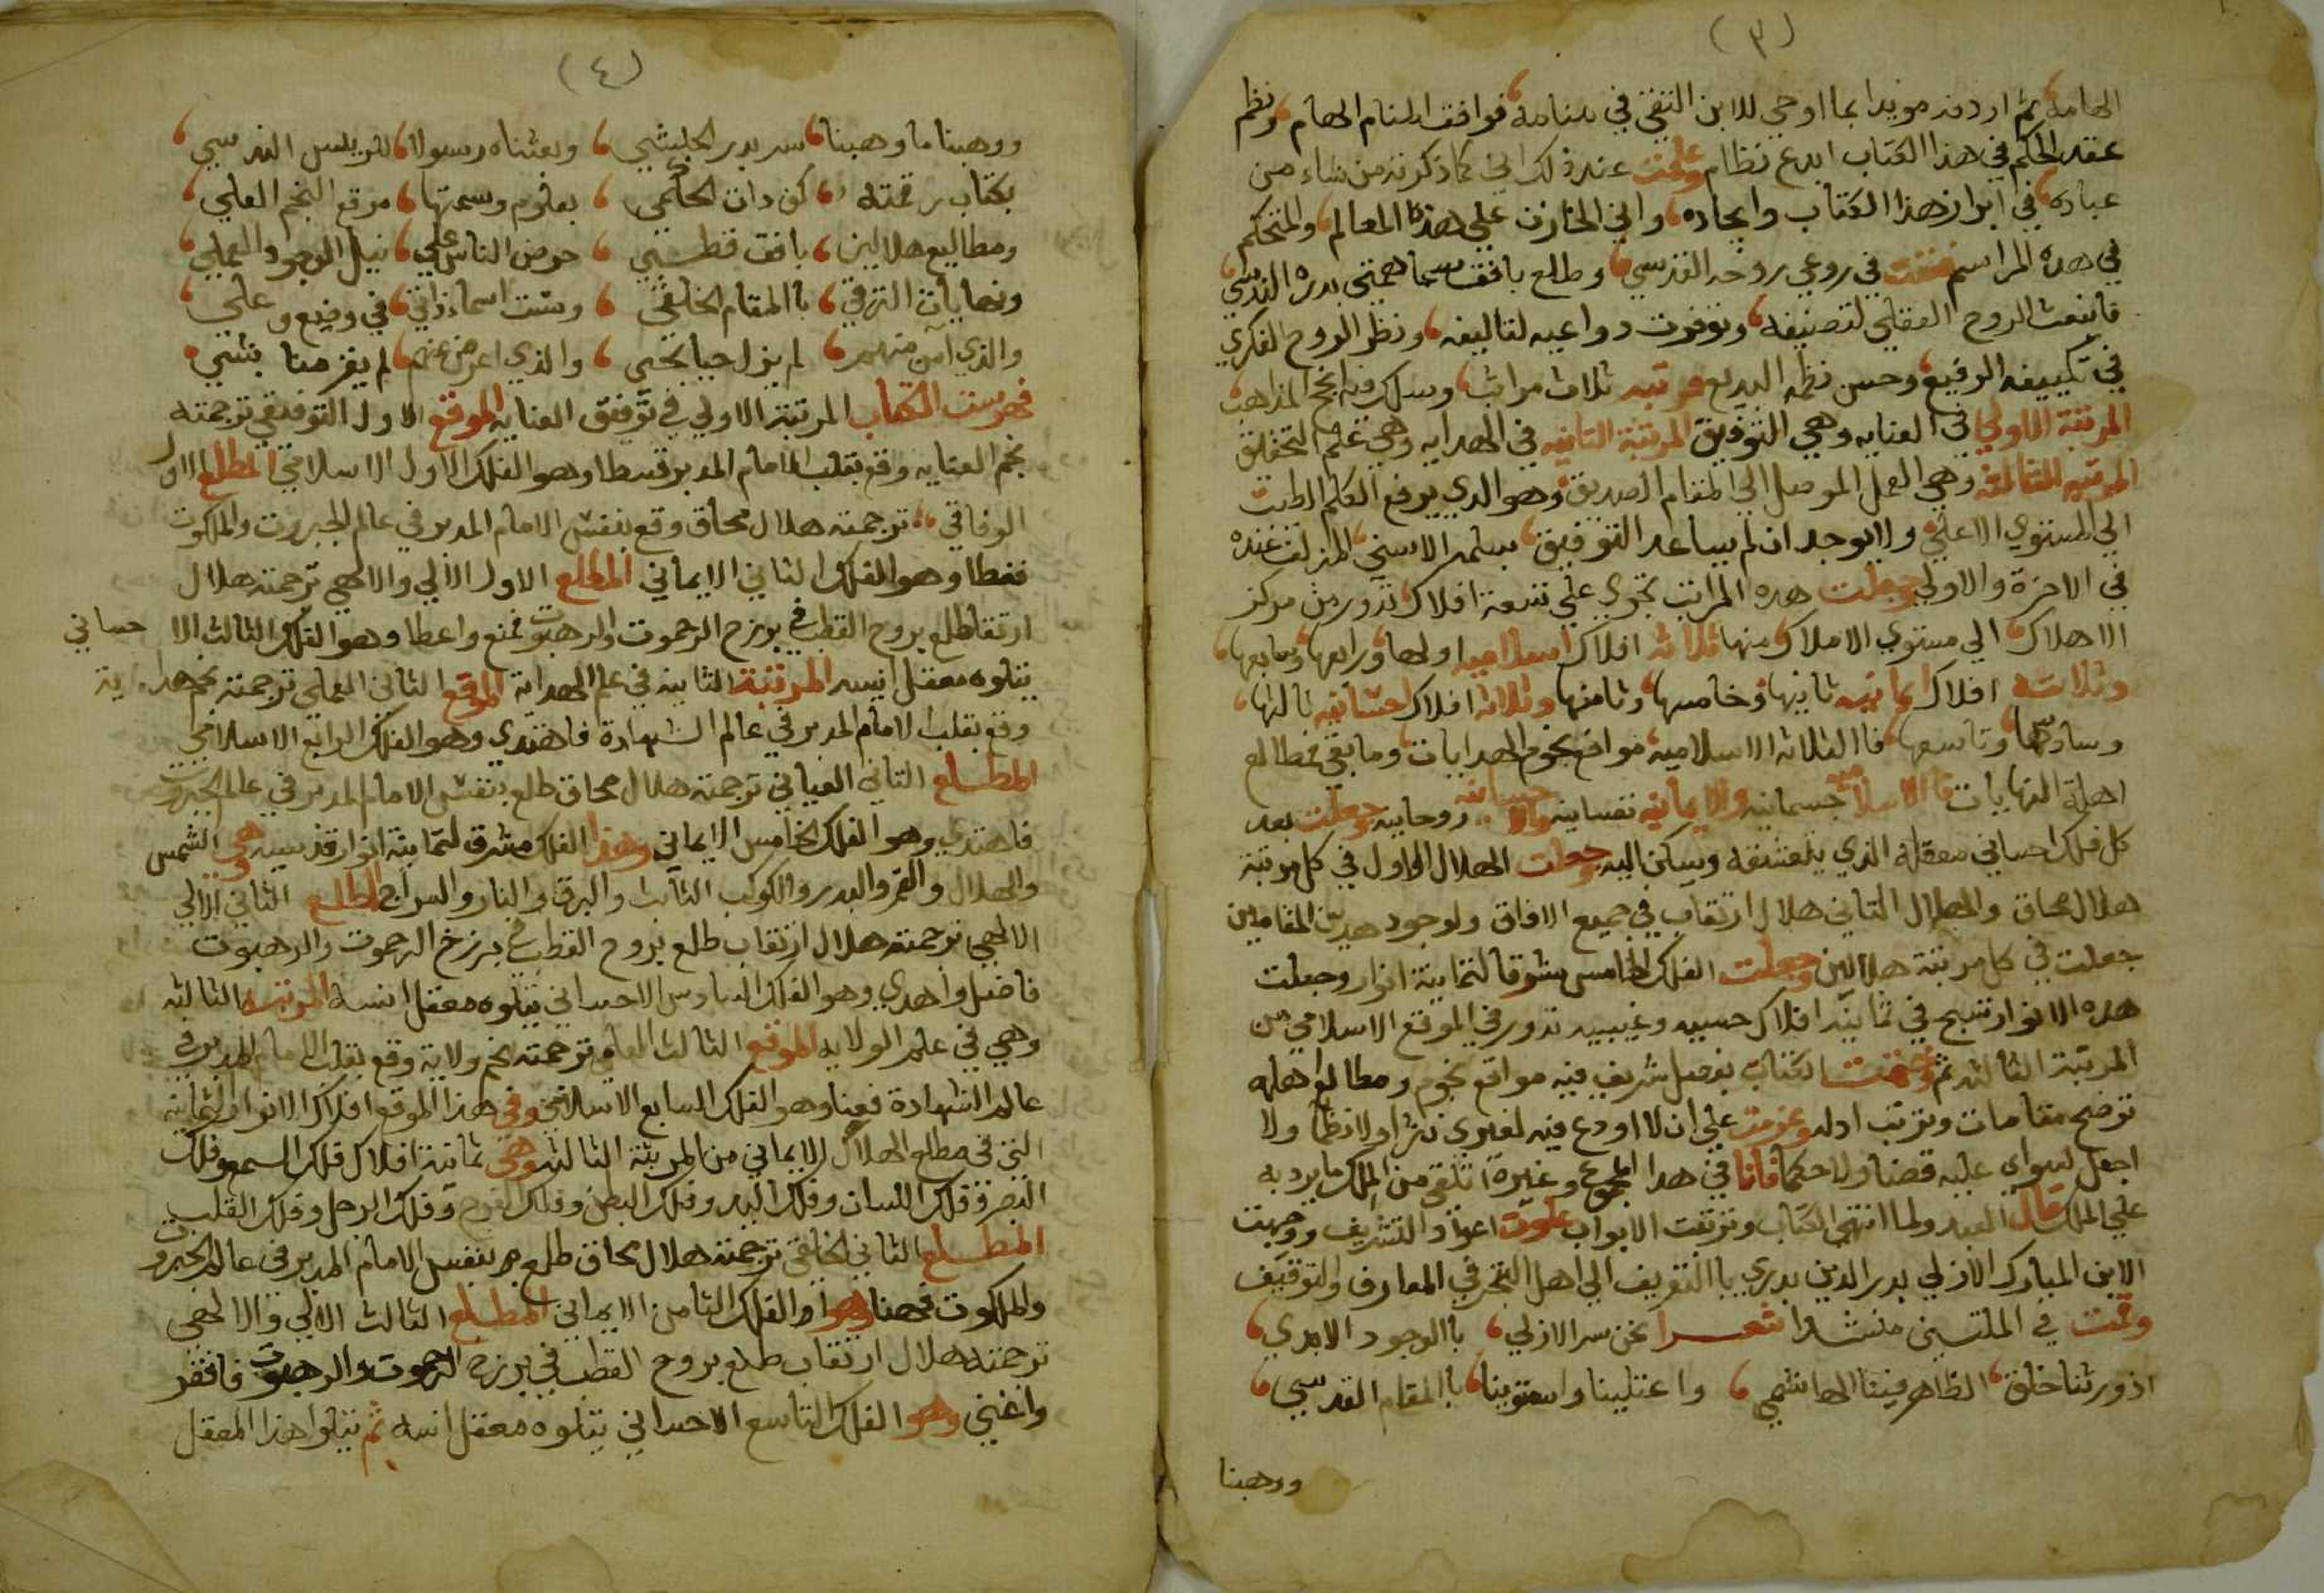 (٣)
الهامه ثم اردفه مويدا بما اوحي للابن التقي في منامه فوافق المنام الهام ونظم
عقد الحكم في هذا الكتاب ابدع نظام وعلمت عند ذلك اني كما ذكرته من شاء من
عباده في ابراز هذا الكتاب وايجاده واني الخازن علي هذه المعالم والمتحكم
في هذه المراسم فنفث في روعي روحه القدسي وطلع بافق سما همتي بدره الندسي
فانبعث الروح العقلي لتصنيفه وتوفرت دواعيه لتاليفه ونظر الروح الفكري
في تكييفه الرفيع وحسن نظمه البديع فرتبه ثلاث مراتب وسلك فيه انجح المذاهب
المرتبة الاولي في العنايه وهي التوفيق المرتبة الثانيه في الهدايه وهي علم التحقيق
المرتبه الثالثه وهي العمل الموصل الي المقام الصديق وهو الدي يرفع الكلم الطيب
الي المستوي الاعلي ولايوجد ان لم يساعد التوفيق بسلمه الاسني المزلف عنده
في الاخرة والاولي وجعلت هذه المراتب تجري علي تسعة افلاك تدور من مركز
الاهلاك الي مستوي الاملاك منها ثلاثه افلاك اسلاميه اولها ورابعها وسابعها
وثلاثة افلاك ايمانيه ثانيها وخامسها وثامنها وثلاثه افلاك احسانيه ثالثها
وسادسها وتاسعها فا الثلاثه الاسلاميه مواقع نجوم الهدايات وما بقي فمطالع
اهلة النهايات فا الاسلاميه جسمانيه والايمانيه نفسانيه والاحسانيه روحانيه وجعلت بعد
كل فلك احساني معقله الذي يتعشقه ويسكن اليه وجعلت الهلال الاول في كل مرتبة
هلال محاق والهلال الثاني هلال ارتقاب في جميع الافاق ولوجود هدين المقامين
جعلت في كل مرتبة هلالين وجعلت الفلك الخامس مشرقا لثمانية انوار وجعلت
هده الانوار تسبح في ثمانية افلاك حسيه وغيبيه تدور في الموقع الاسلامي من
المرتبة الثالثه ثم وختمت الكتاب بفصل شريف فيه مواقع نجوم ومطالع اهله
توضح مقامات وترتب ادله وعزمت علي ان لا اودع فيه لغيري نثرا ولا نظما ولا
اجعل لسواي عليه قضا ولا حكما فانا في هدا المجموع وغيره اتلقي من الملك ما يرد به
علي الملك قال العبد ولما انتهي الكتاب وترتبت الابواب علوت اعواد التشريف ووجهت
الابن المبارك الازلي بدر الدين بدري با التعريف الي اهل التبحر في المعارف والتوقيف
وقمت في الملتسين منشدا شعـــرا نحن سر الازلي با الوجود الابدي
اذ ورثنا خلق الظاهر فينا الهاشمي واعتلينا واستوينا با المقام القدسي
ووهبنا
(٤)
ووهبنا ما وهبنا سر بدر الحبشي وبعثناه رسولا للرييس الندسي
بكتاب رقمته كف دات الحكمي بعلوم وسمتها موقع النجم العلي
ومطاليع هلالين بافق قطبـي حرض الناس علي نيل الوجود العملي
ونهايات الترقي با المقام الخلقي وستت اسماء ذاتي في وضيع وعلي
والذي آمن منهم لم يزل حيا بحي والذي اعرض عنهم لم يفز منا بشي
فهرست الكتاب المرتبة الاولي في توفيق العنايه الموقع الاول التوفيقي ترجمته
نجم العنايه وقع بقلب الامام المدبر قسطا وهو الفلك الاول الاسلامي المطلع الاول
الوفاقي ترجمته هلال محاق وقع بنفس الامام المدبر في عالم الجبروت والملكوت
فغطا وهو الفلك الثاني الايماني المطلع الاول الالي والالهي ترجمته هلال
ارتقا طلع بروح القطب في برزخ الرحموت والرهبوت فمنع واعطا وهو الفلك الثالث الا حساني
يتلوه معقل انسه المرتبة الثانيه في علم الهداية الموقع الثاني العملي ترجمته نجم هداية
وقع بقلب الامام المدبر في عالم الشهادة فاهتدي وهو الفلك الرابع الاسلامي
المطـلـع الثاني العياني ترجمته هلال محاق طلع بنفس الامام المدبر في عالم الجبروت
فاهتدي وهو الفلك الخامس الايماني وهذا الفلك مشرق لثمانية انوار قدسيه وهي الشمس
والهلال والقمر والبدر والكوكب الثابت والبرق والنار والسراج المطلع الثاني الالي
الالهي ترجمته هلال ارتقاب طلع بروح القطب في برزخ الرحموت والرهبوت
فاضل واهدي وهو الفلك السادس الاحساني يتلوه معقل انسه المرتبه الثالثه
وهي في علم الولايه الموقع الثالث العلمي ترجمته نجم ولاية وقع بقلب الامام المدبر في
عالم الشهادة فعنا وهو الفلك السابع الاسلامي وفي هذا الموقع افلاك الانوار الثمانيه
التي في مطلع الهلال الايماني من المرتبة الثالثه وهي ثمانية افلاك فلك السمع وفلك
البصر وفلك اللسان وفلك اليد وفلك البطن وفلك الفرج وفلك الرجل وفلك القلب
المطـــلع الثاني الخلقي ترجمته هلال محاق طلع بنفس الامام المدبر في عالم الجبروت
والملكوت فهنا وهو الفلك الثامن الايماني المطـلع الثالث الالي والالهي
ترجمته هلال ارتقاب طلع بروح القطب في برزخ الرحموت والرهبوت فافقر
واغني وهو الفلك التاسع الاحساني يتلوه معقل انسه ثم يتلوا هذا المعقل